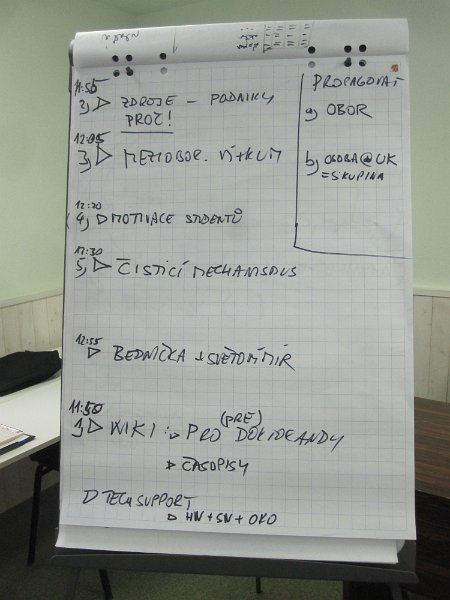 11:55
2) ▷ ZDROJE – PODNIKY
PROČ!
12:05
3) ▷ MEZIOBOR. VÝZKUM
12:20
4) ▷ MOTIVACE STUDENTŮ
12:30
5) ▷ ČISTÍCÍ MECHANISMUS
12:55
▷ BEDNIČKA + SVĚTOVÍ MÍR
11:50
1) ▷ WIKI: ▷ PRO (PRE) DOKTORANDY
▷ ČASOPISY
▷ TECH SUPPORT
▷ HW + SW + OKO
PROPAGOVAT
a) OBOR
b) OSOBA@UK
= SKUPINA